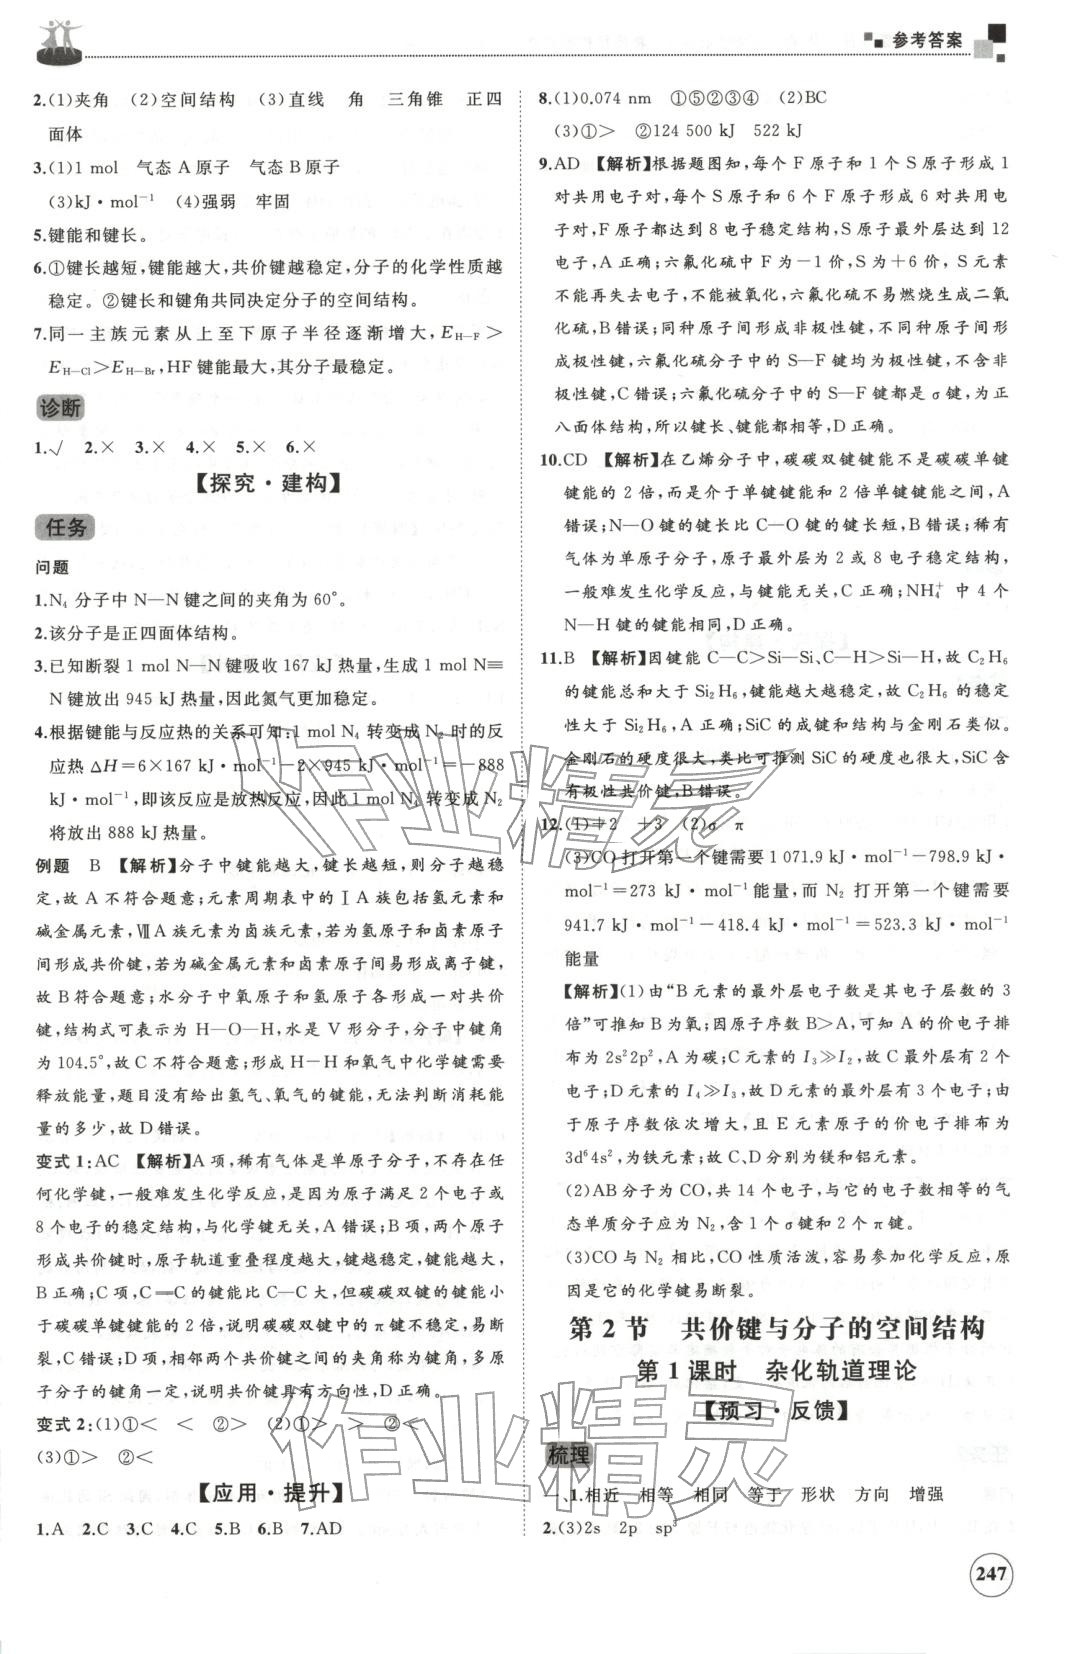 参考答案
2.(1)夹角 (2)空间结构 (3)直线 角 三角锥 正四
面体
3.(1)1 mol 气态 A 原子 气态 B 原子
(3)kJ·mol⁻¹ (4)强弱 牢固
5.键能和键长。
6.①键长越短,键能越大,共价键越稳定,分子的化学性质越
稳定。②键长和键角共同决定分子的空间结构。
7.同一主族元素从上至下原子半径逐渐增大,E_{H—F}>
E_{H—Cl}>E_{H—Br},HF 键能最大,其分子最稳定。
诊断
1.√ 2.× 3.× 4.× 5.× 6.×
【探究·建构】
任务
问题
1.N₄ 分子中 N—N 键之间的夹角为 60°。
2.该分子是正四面体结构。
3.已知断裂 1 mol N—N 键吸收 167 kJ 热量,生成 1 mol N≡
N 键放出 945 kJ 热量,因此氮气更加稳定。
4.根据键能与反应热的关系可知:1 mol N₄ 转变成 N₂ 时的反
应热 △H=6×167 kJ·mol⁻¹-2×945 kJ·mol⁻¹=-888
kJ·mol⁻¹,即该反应是放热反应,因此 1 mol N₄ 转变成 N₂
将放出 888 kJ 热量。
例题 B 【解析】分子中键能越大,键长越短,则分子越稳
定,故 A 不符合题意;元素周期表中的 ⅠA 族包括氢元素和
碱金属元素,ⅦA族元素为卤族元素,若为氢原子和卤素原子
间形成共价键,若为碱金属元素和卤素原子间易形成离子键,
故 B符合题意;水分子中氧原子和氢原子各形成一对共价
键,结构式可表示为 H—O—H,水是 V 形分子,分子中键角
为 104.5°,故 C 不符合题意;形成 H—H 和氧气中化学键需要
释放能量,题目没有给出氢气、氧气的键能,无法判断消耗能
量的多少,故 D 错误。
变式 1:AC 【解析】A 项,稀有气体是单原子分子,不存在任
何化学键,一般难发生化学反应,是因为原子满足 2 个电子或
8 个电子的稳定结构,与化学键无关,A 错误;B 项,两个原子
形成共价键时,原子轨道重叠程度越大,键越稳定,键能越大,
B 正确;C 项,C=C 的键能比 C—C 大,但碳碳双键的键能小
于碳碳单键键能的 2 倍,说明碳碳双键中的 π 键不稳定,易断
裂,C 错误;D 项,相邻两个共价键之间的夹角称为键角,多原
子分子的键角一定,说明共价键具有方向性,D 正确。
变式 2:(1)①< < ②> (2)①> > ②<
(3)①> ②<
【应用·提升】
1.A 2.C 3.C 4.C 5.B 6.B 7.AD
8.(1)0.074 nm ①⑤②③④ (2)BC
(3)①> ②124 500 kJ 522 kJ
9.AD 【解析】根据题图知,每个 F 原子和 1 个 S 原子形成 1
对共用电子对,每个 S 原子和 6 个 F 原子形成 6 对共用电
子对,F 原子都达到 8 电子稳定结构,S 原子最外层达到 12
电子,A 正确;六氟化硫中 F 为-1 价,S 为+6 价, S 元素
不能再失去电子,不能被氧化,六氟化硫不易燃烧生成二氧
化硫,B 错误;同种原子间形成非极性键,不同种原子间形
成极性键,六氟化硫分子中的 S—F 键均为极性键,不含非
极性键,C 错误;六氟化硫分子中的 S—F 键都是 σ 键,为正
八面体结构,所以键长、键能都相等,D 正确。
10.CD 【解析】在乙烯分子中,碳碳双键键能不是碳碳单键
键能的 2 倍,而是介于单键键能和 2 倍单键键能之间,A
错误;N—O 键的键长比 C—O 键的键长短,B 错误;稀有
气体为单原子分子,原子最外层为 2 或 8 电子稳定结构,
一般难发生化学反应,与键能无关,C 正确;NH₄⁺ 中 4 个
N—H 键的键能相同,D 正确。
11.B 【解析】因键能 C—C>Si—Si、C—H>Si—H,故 C₂H₆
的键能总和大于 Si₂H₆,键能越大越稳定,故 C₂H₆ 的稳定
性大于 Si₂H₆,A 正确;SiC 的成键和结构与金刚石类似。
金刚石的硬度很大,类比可推测 SiC 的硬度也很大,SiC 含
有极性共价键,B 错误。
12.(1)+2 +3 (2)σ π
(3)CO 打开第一个键需要 1 071.9 kJ·mol⁻¹-798.9 kJ·
mol⁻¹=273 kJ·mol⁻¹能量,而 N₂ 打开第一个键需要
941.7 kJ·mol⁻¹-418.4 kJ·mol⁻¹=523.3 kJ·mol⁻¹
能量
【解析】(1)由“B 元素的最外层电子数是其电子层数的 3
倍”可推知 B 为氧;因原子序数 B>A,可知 A 的价电子排
布为 2s²2p²,A 为碳;C 元素的 I₃≫I₂,故 C 最外层有 2 个
电子;D 元素的 I₄≫I₃,故 D 元素的最外层有 3 个电子;由
于原子序数依次增大,且 E 元素原子的价电子排布为
3d⁶4s²,为铁元素;故 C、D 分别为镁和铝元素。
(2)AB 分子为 CO,共 14 个电子,与它的电子数相等的气
态单质分子应为 N₂,含 1 个 σ 键和 2 个 π 键。
(3)CO 与 N₂ 相比,CO 性质活泼,容易参加化学反应,原
因是它的化学键易断裂。
第 2 节 共价键与分子的空间结构
第 1 课时 杂化轨道理论
【预习·反馈】
梳理
一、1.相近 相等 相同 等于 形状 方向 增强
2.(3)2s 2p sp³
247
作业精灵
作业精灵